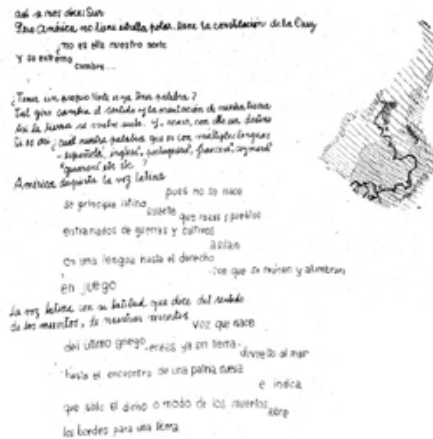 así se nos dice: Sur
Pero América no tiene estrella polar. Tiene la constelación de la Cruz
¿no es ella nuestro norte
y su extremo
cumbre...
¿Tener un propio Norte es ya una palabra?
Tal giro cambia el sentido y la orientación de nuestra tierra
Así la tierra se vuelve suelo. Y, acaso, con ello un destino
¿cuál nuestra palabra que es con múltiples lenguas
español, inglés, portugués, francés, aymará
guaraní etc etc
América despierta la voz latina
pues no se nace
se principia latino
suerte
que razas y pueblos
entrañados de guerras y cultivos
asilan
en una lengua hasta el derecho
con que se miran y alumbran
en juego
La voz latina con su latitud que dice del sentido
de los muertos, de nuestros muertos
voz que nace
del último griego, eneas ya sin tierra
devuelto al mar
hasta el encuentro de una patria nueva
e indica
que sólo el divino o modo de los muertos abre
los bordes para una tierra